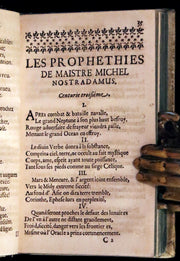 LES PROPHETIES
DE MAISTRE MICHEL
NOSTRADAMUS.
Centurie troisiéme.
I.
APres combat & bataille navalle,
Le grand Neptune à son plus haut beffroy,
Rouge adversaire de
Mettant le grand Ocean en effroy.
II.
Le divin Verbe donra à la substance,
Comprins ciel, terre, occult au fait mystique
Corps, ame, esprit ayant toute puissance,
Tant sous ses pieds comme au siege Celique.
III.
Mars & Mercure, & l'argent joint ensemble,
Vers le Midy extreme siccité:
Au fond d'Asie on dira terre tremble,
Corinthe, Ephese lors en perplexité.
IV.
Quand seront proches le defaut des lunaires
De l'un à l'autre ne distant grandement,
Froid, siccité, danger vers les frontieres,
Mesme où l'Oracle a prins commencement.
C 2